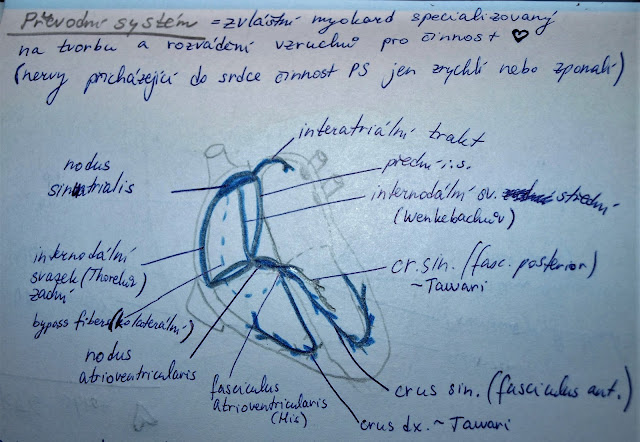 Převodní systém = zvláštní myokard specializovaný
na tvorbu a rozvádění vzruchů pro činnost ♡
(nervy přicházející do srdce činnost PS jen zrychlí nebo zpomalí)
interatriální trakt
nodus
sinatrialis
přední i.s.
internodální sv. střední
(Wenkebachův)
internodální
svazek (Thorelův)
zadní
cr. sin. (fasc. posterior)
~Tawari
bypass fibers (kolaterální)
nodus
atrioventricularis
fasciculus
atrioventricularis
(His)
crus sin. (fasciculus ant.)
crus dx. ~ Tawari